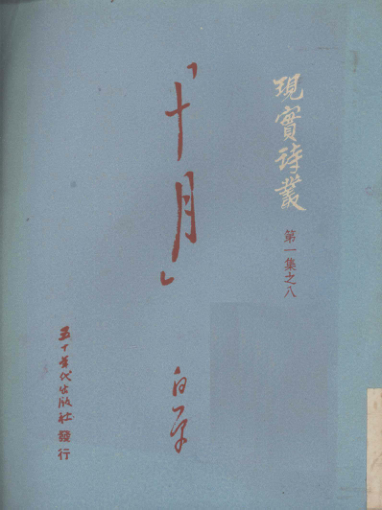 現實詩叢
第一集之八
「十月」
白原
五十年代出版社發行